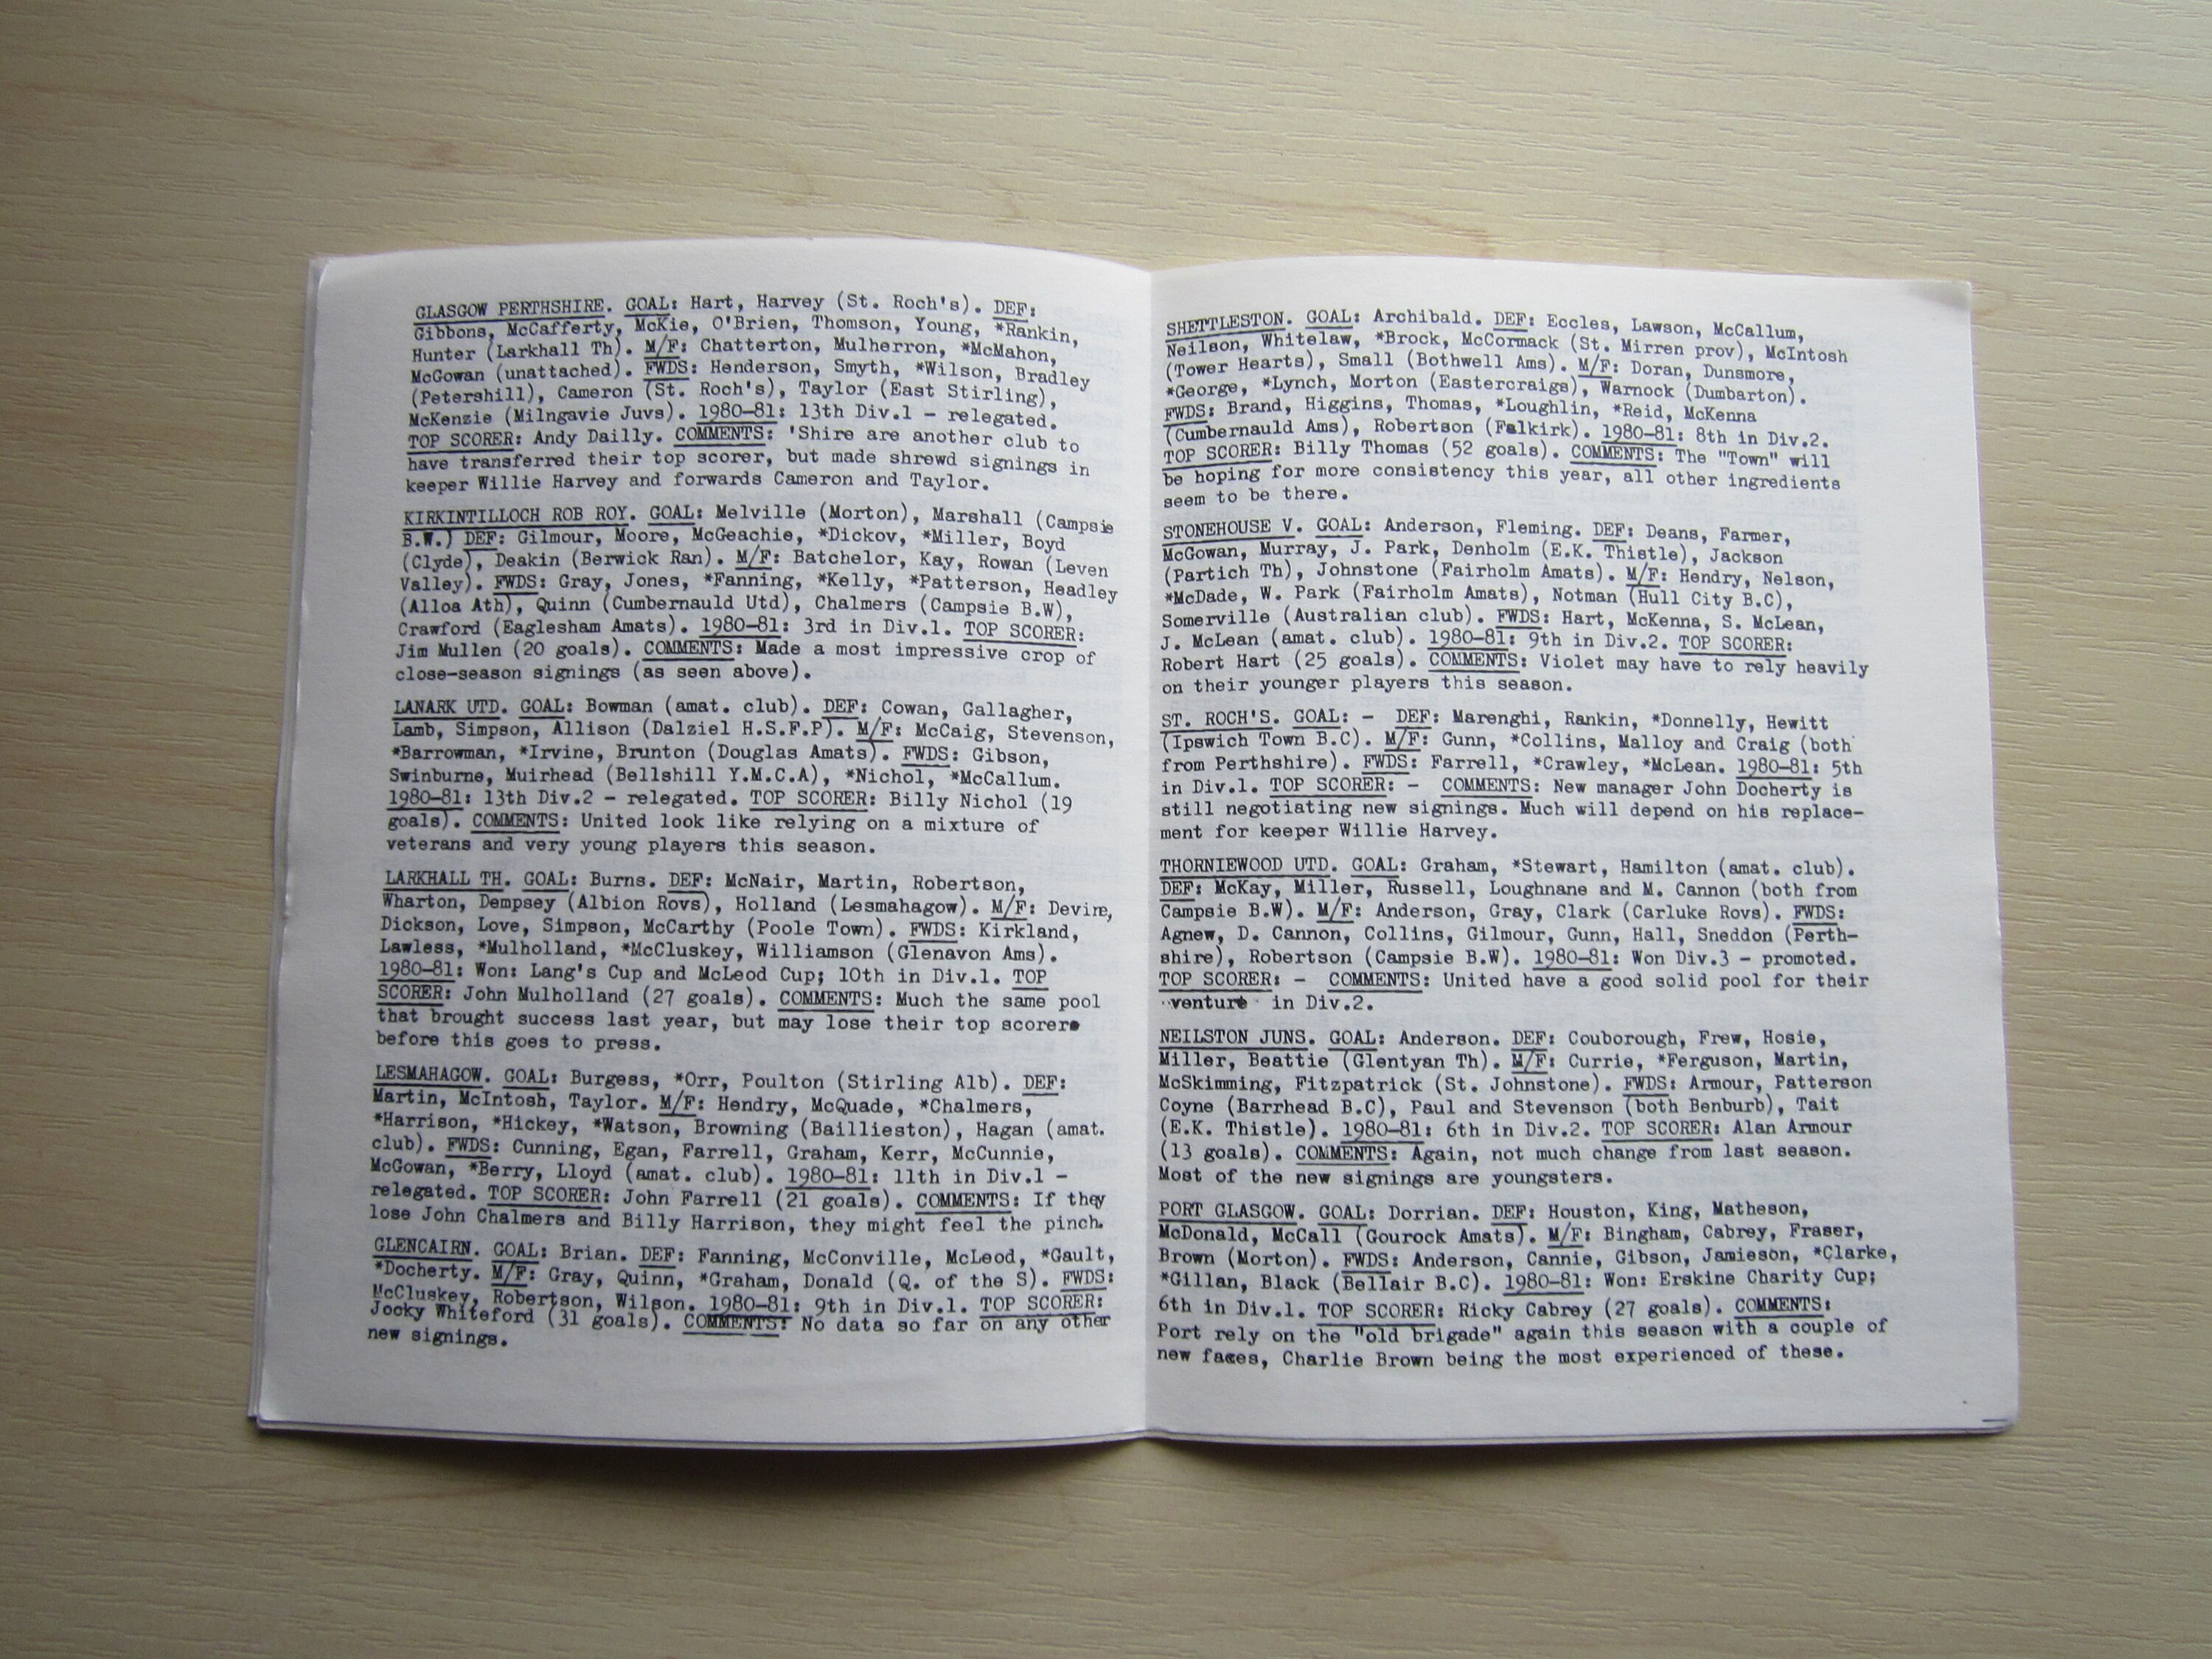 GLASGOW PERTHSHIRE. GOAL: Hart, Harvey (St. Roch's). DEF:
Gibbons, McCafferty, McKie, O'Brien, Thomson, Young, *Rankin,
Hunter (Larkhall Th). M/F: Chatterton, Mulherron, *McMahon,
McGowan (unattached). FWDS: Henderson, Smyth, *Wilson, Bradley
(Petershill), Cameron (St. Roch's), Taylor (East Stirling),
McKenzie (Milngavie Juvs). 1980-81: 13th Div.1 - relegated.
TOP SCORER: Andy Dailly. COMMENTS: 'Shire are another club to
have transferred their top scorer, but made shrewd signings in
keeper Willie Harvey and forwards Cameron and Taylor.
KIRKINTILLOCH ROB ROY. GOAL: Melville (Morton), Marshall (Campsie
B.W.) DEF: Gilmour, Moore, McGeachie, *Dickov, *Miller, Boyd
(Clyde), Deakin (Berwick Ran). M/F: Batchelor, Kay, Rowan (Leven
Valley). FWDS: Gray, Jones, *Fanning, *Kelly, *Patterson, Headley
(Alloa Ath), Quinn (Cumbernauld Utd), Chalmers (Campsie B.W),
Crawford (Eaglesham Amats). 1980-81: 3rd in Div.1. TOP SCORER:
Jim Mullen (20 goals). COMMENTS: Made a most impressive crop of
close-season signings (as seen above).
LANARK UTD. GOAL: Bowman (amat. club). DEF: Cowan, Gallagher,
Lamb, Simpson, Allison (Dalziel H.S.F.P). M/F: McCaig, Stevenson,
*Barrowman, *Irvine, Brunton (Douglas Amats). FWDS: Gibson,
Swinburne, Muirhead (Bellshill Y.M.C.A), *Nichol, *McCallum.
1980-81: 13th Div.2 - relegated. TOP SCORER: Billy Nichol (19
goals). COMMENTS: United look like relying on a mixture of
veterans and very young players this season.
LARKHALL TH. GOAL: Burns. DEF: McNair, Martin, Robertson,
Wharton, Dempsey (Albion Rovs), Holland (Lesmahagow). M/F: Devine,
Dickson, Love, Simpson, McCarthy (Poole Town). FWDS: Kirkland,
Lawless, *Mulholland, *McCluskey, Williamson (Glenavon Ams).
1980-81: Won: Lang's Cup and McLeod Cup; 10th in Div.1. TOP
SCORER: John Mulholland (27 goals). COMMENTS: Much the same pool
that brought success last year, but may lose their top scorer
before this goes to press.
LESMAHAGOW. GOAL: Burgess, *Orr, Poulton (Stirling Alb). DEF:
Martin, McIntosh, Taylor. M/F: Hendry, McQuade, *Chalmers,
*Harrison, *Hickey, *Watson, Browning (Baillieston), Hagan (amat.
club). FWDS: Cunning, Egan, Farrell, Graham, Kerr, McCunnie,
McGowan, *Berry, Lloyd (amat. club). 1980-81: 11th in Div.1 -
relegated. TOP SCORER: John Farrell (21 goals). COMMENTS: If they
lose John Chalmers and Billy Harrison, they might feel the pinch.
GLENCAIRN. GOAL: Brian. DEF: Fanning, McConville, McLeod, *Gault,
*Docherty. M/F: Gray, Quinn, *Graham, Donald (Q. of the S). FWDS:
McCluskey, Robertson, Wilson. 1980-81: 9th in Div.1. TOP SCORER:
Jocky Whiteford (31 goals). COMMENTS: No data so far on any other
new signings.
SHETTLESTON. GOAL: Archibald. DEF: Eccles, Lawson, McCallum,
Neilson, Whitelaw, *Brock, McCormack (St. Mirren prov), McIntosh
(Tower Hearts), Small (Bothwell Ams). M/F: Doran, Dunsmore,
*George, *Lynch, Morton (Eastercraigs), Warnock (Dumbarton).
FWDS: Brand, Higgins, Thomas, *Loughlin, *Reid, McKenna
(Cumbernauld Ams), Robertson (Falkirk). 1980-81: 8th in Div.2.
TOP SCORER: Billy Thomas (52 goals). COMMENTS: The "Town" will
be hoping for more consistency this year, all other ingredients
seem to be there.
STONEHOUSE V. GOAL: Anderson, Fleming. DEF: Deans, Farmer,
McGowan, Murray, J. Park, Denholm (E.K. Thistle), Jackson
(Partich Th), Johnstone (Fairholm Amats). M/F: Hendry, Nelson,
*McDade, W. Park (Fairholm Amats), Notman (Hull City B.C),
Somerville (Australian club). FWDS: Hart, McKenna, S. McLean,
J. McLean (amat. club). 1980-81: 9th in Div.2. TOP SCORER:
Robert Hart (25 goals). COMMENTS: Violet may have to rely heavily
on their younger players this season.
ST. ROCH'S. GOAL: - DEF: Marenghi, Rankin, *Donnelly, Hewitt
(Ipswich Town B.C). M/F: Gunn, *Collins, Malloy and Craig (both
from Perthshire). FWDS: Farrell, *Crawley, *McLean. 1980-81: 5th
in Div.1. TOP SCORER: - COMMENTS: New manager John Docherty is
still negotiating new signings. Much will depend on his replace-
ment for keeper Willie Harvey.
THORNIEWOOD UTD. GOAL: Graham, *Stewart, Hamilton (amat. club).
DEF: McKay, Miller, Russell, Loughnane and M. Cannon (both from
Campsie B.W). M/F: Anderson, Gray, Clark (Carluke Rovs). FWDS:
Agnew, D. Cannon, Collins, Gilmour, Gunn, Hall, Sneddon (Perth-
shire), Robertson (Campsie B.W). 1980-81: Won Div.3 - promoted.
TOP SCORER: - COMMENTS: United have a good solid pool for their
venture in Div.2.
NEILSTON JUNS. GOAL: Anderson. DEF: Couborough, Frew, Hosie,
Miller, Beattie (Glentyan Th). M/F: Currie, *Ferguson, Martin,
McSkimming, Fitzpatrick (St. Johnstone). FWDS: Armour, Patterson
Coyne (Barrhead B.C), Paul and Stevenson (both Benburb), Tait
(E.K. Thistle). 1980-81: 6th in Div.2. TOP SCORER: Alan Armour
(13 goals). COMMENTS: Again, not much change from last season.
Most of the new signings are youngsters.
PORT GLASGOW. GOAL: Dorrian. DEF: Houston, King, Matheson,
McDonald, McCall (Gourock Amats). M/F: Bingham, Cabrey, Fraser,
Brown (Morton). FWDS: Anderson, Cannie, Gibson, Jamieson, *Clarke,
*Gillan, Black (Bellair B.C). 1980-81: Won: Erskine Charity Cup;
6th in Div.1. TOP SCORER: Ricky Cabrey (27 goals). COMMENTS:
Port rely on the "old brigade" again this season with a couple of
new faces, Charlie Brown being the most experienced of these.